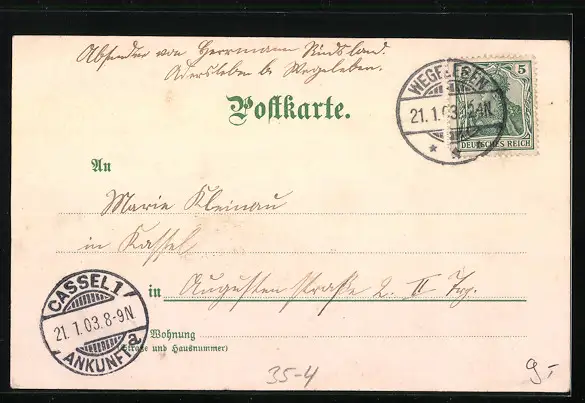 Absender von Herrmann Rindsland.
Adersleben b. Wegeleben.
Postkarte.
WEGELEBEN
21.1.03. 2-4N.
5
DEUTSCHES REICH
An
Marie Kleinau
in Kassel
in Augusten straße 2. II Trp.
CASSEL 1
21.1.03.8-9N
a
ANKUNFT
Wohnung
(Straße und Hausnummer)
35-4
9.-